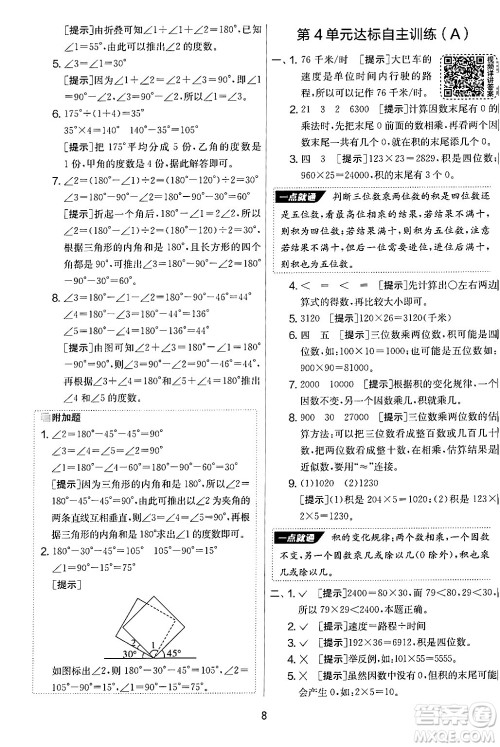 ∠1=55°,也可推出∠1的度数。
5. ∠2=180°-90°-30°=60°
∠3=180°-90°-60°=30°
∠4=180°-30°=150°
6. 175°÷(1+4)=35°
35°×4=140° 140°-35°=105°
[提示]175°平均分成5份,乙角的度数
占1份,甲角的度数占4份,据此解答即可。
7. ∠2=(180°-60°)÷2=60°
∠2=(180°-90°)÷2=45°
∠2=(180°-120°)÷2=30°
[提示]折起一个角后,∠1+∠2+∠2=
180°,根据∠1的度数,可推出∠2的度数。
8. ∠1=180°-90°-30°=60°
[提示]∠1、∠2与长方形的一个内角组
成平角,所以∠1+∠2+90°=180°,∠1=
180°-90°-30°=60°。
9. ∠3=180°-∠1-∠2=180°-90°-46°=
44°
∠4=180°-∠3=180°-44°=136°
∠5=180°-∠4=180°-136°=44°
[提示]∠1、∠2和∠3组成一个平角,所
以∠3=180°-90°-46°=44°。∠3和∠4
组成平角,所以∠4=180°-44°=136°。
∠4和∠5组成平角,所以∠5=180°-
136°=44°。
附加题
1. ∠2=180°-45°-45°=90°
∠3=∠4=∠5=180°-90°=90°
[提示]因为三角形的内角和是180°,所
以∠2=180°-45°-45°=90°。以∠2为夹角的
两条直线互相垂直,所以∠3=∠4=∠5=90°。
2. 180°-30°-45°=105° 105°-90°=15°
105°-90°=15°
[提示]
2 3 4
30° 1 45°
如图标出∠1、∠2、∠3和∠4,∠2+∠3+∠4=
180°-30°-45°=105°,∠2+∠3=90°,∠4=
105°-90°=15°,∠3+∠4=90°,∠2=105°-
90°=15°。
第4单元达标自主训练(A)
一、1. 76千米/时 [提示]大巴车的
速度是单位时间内行驶的路
程,记作76千米/时。
2. 21 3 2 6 [提示]计算因数末尾有0的
乘法时,先将末尾0前面的数相乘,再看因
数末尾有几个0,就在积的末尾添几个0。
3. 四 3 [提示]123×23=2829,积是四位数。
960×25=24000,积的末尾有3个0。
一点就通 判断三位数乘两位数的积是四位数
还是五位数,可看最高位相乘的结果,若结果满十,
则积为五位数;最高位相乘的结果,若结果不满十,
则积为四位数,但后一位需要进位,进位后满十,
则积为五位数。
4. < = < = [提示]先计算出○左边和右边
算式的得数,再比较大小。
5. 3120 [提示]120×26=3120(千米)
6. 四 五 [提示]三位数乘两位数,积可能是
四位数,也可能是五位数,如100×10=
1000,100×90=9000,900×90=81000。
7. 2000 10000 [提示]根据积的变化规律,一
个因数不变,另一个因数乘几,积就乘几。
8. 900 30 27000 [提示]三位数乘两位数的估
算方法:可以把三位数看成整百数或几百
几十数,把两位数看成整十数,估算结果是
近似数,要用“≈”连接。
9. (1)1020 (2)1230
[提示](1)积是204×5=1020。(2)积是
2×5=10。
一点就通 积的变化规律:一个因数
不变,另一个因数乘几或除以几(0除外),积也
乘几或除以几。
二、1. √ [提示]2400=80×30,79×29<80×
30,所以79×29<2400,本题正确。
2. √ [提示]速度=路程÷时间
3. × [提示]192×36=6912,积是四位数。
4. × [提示]举反例,如164×15=2460。
5. × [提示]因数末尾没有0,积的末尾可能
会产生0,如12×5=60,2×5=10。
8